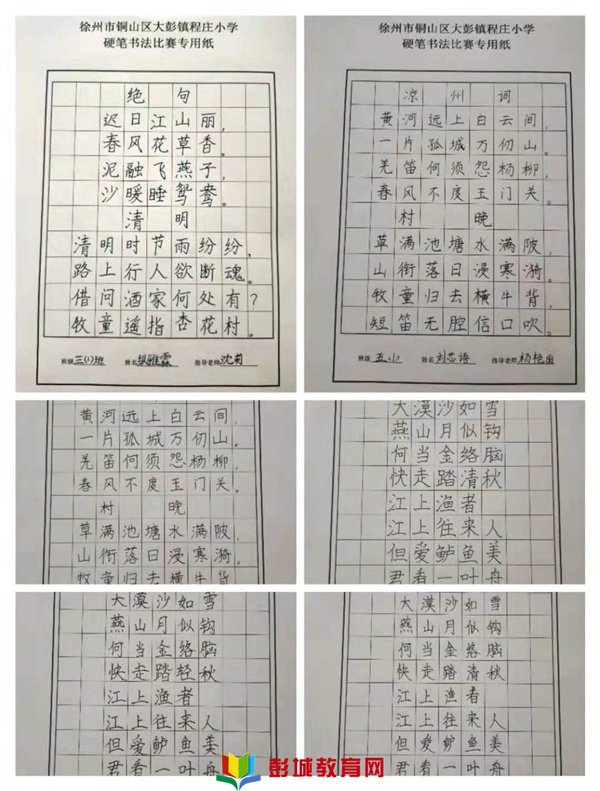 徐州市铜山区大彭镇程庄小学
硬笔书法比赛专用纸
绝句
迟日江山丽，
春风花草香。
泥融飞燕子，
沙暖睡鸳鸯。
清明
清明时节雨纷纷，
路上行人欲断魂。
借问酒家何处有？
牧童遥指杏花村。
班级 三(1)班 姓名 张雅霖 指导老师 沈菊
徐州市铜山区大彭镇程庄小学
硬笔书法比赛专用纸
凉州词
黄河远上白云间，
一片孤城万仞山。
羌笛何须怨杨柳，
春风不度玉门关。
村晚
草满池塘水满陂，
山衔落日浸寒漪。
牧童归去横牛背，
短笛无腔信口吹。
班级 五 姓名 刘 诗 指导老师 杨艳
黄河远上白云间，
一片孤城万仞山。
羌笛何须怨杨柳，
春风不度玉门关。
村晚
草满池塘水满陂，
山衔落日浸寒漪。
牧童归去横牛背
大漠沙如雪
燕山月似钩
何当金络脑
快走踏清秋
江上渔者
江上往来人
但爱鲈鱼美
君看一叶舟
大漠沙如雪
燕山月似钩
何当金络脑
快走踏轻秋
江上渔者
江上往来人
但爱鲈鱼美
君看一叶舟
大漠沙如雪
燕山月似钩
何当金络脑
快走踏清秋
江上渔者
江上往来人
但爱鲈鱼美
君看一叶舟
彭城教育网